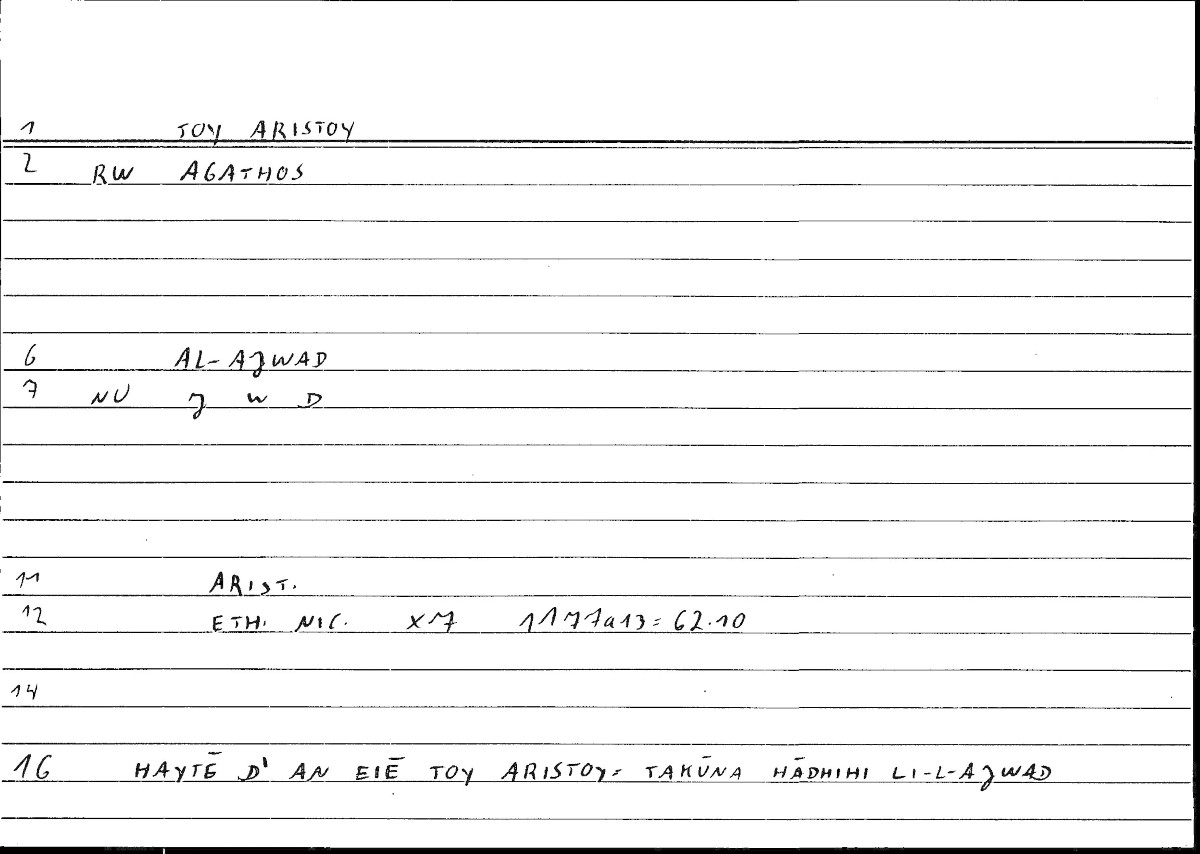 1 TOY ARISTOY
2 RW AGATHOS
6 AL-AJWAD
7 NU J W D
11 ARIST.
12 ETH. NIC. X7 1177a13=62.10
14
16 HAYTĒ D' AN EIĒ TOY ARISTOY= TAKŪNA HĀDHIHI LI-L-AJWAD